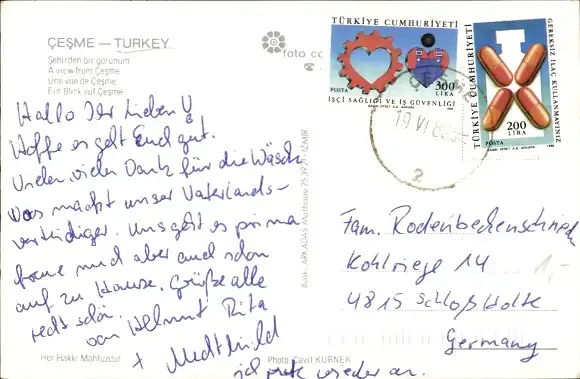 ÇEŞME — TURKEY
Şehirden bir görünüm
A view from Çeşme
Une vue de Çeşme
Ein Blick auf Çeşme
Hallo Ihr Lieben
Hoffe es geht Euch gut.
Vielen vielen Dank für die Wäsche
Was macht unser Vaterlands-
verteidiger. Uns geht es prima
freue mich aber auch schon
auf zu Hause. Grüße alle
recht schön.
von Helmut Rita
+ Mechthild
ich wieder an.
Her Hakkı Mahfuzdur
Photo Cavit KÜRNEK
foto
TÜRKİYE CUMHURİYETİ
POSTA
300
LİRA
İŞÇİ SAĞLIĞI VE İŞ GÜVENLİĞİ
TÜRKİYE CUMHURİYETİ
GEREKSİZ İLAÇ KULLANMAYINIZ
POSTA
200
LİRA
19 VI 8
2
Fam. Rodenbeckenschnieder
Kohlriege 14
4815 Schloß Holte
Germany
1,-